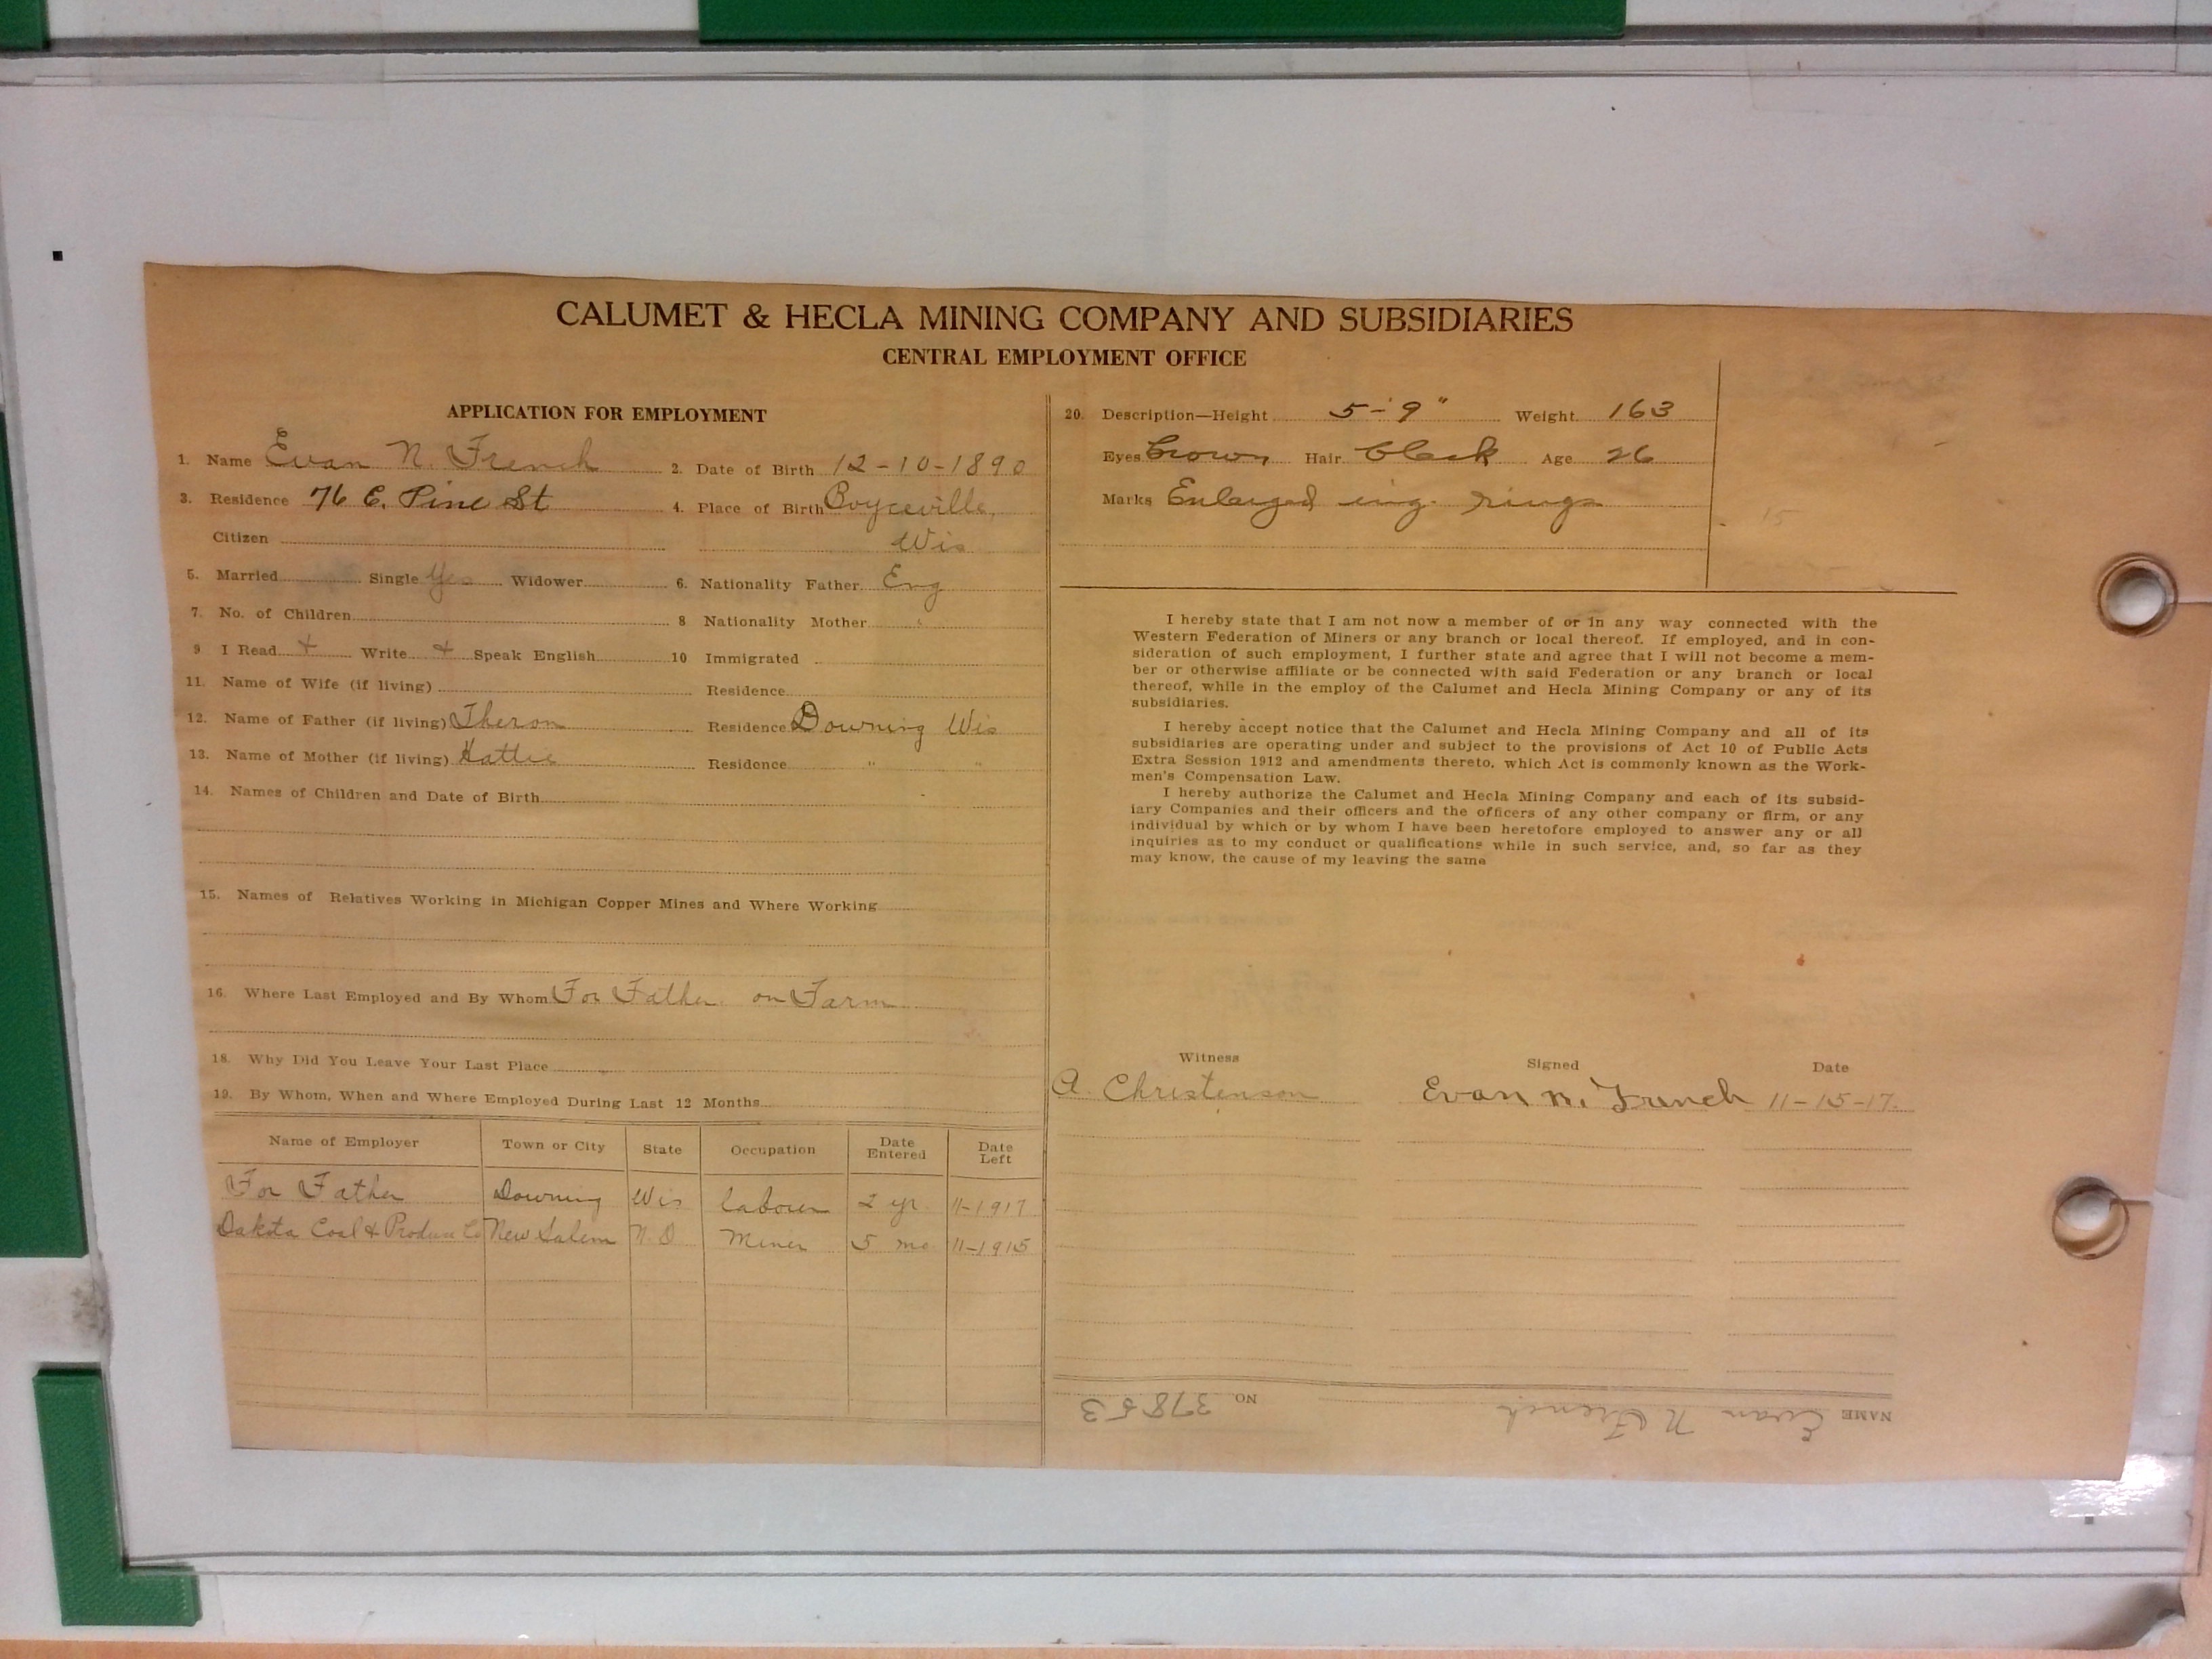 CALUMET & HECLA MINING COMPANY AND SUBSIDIARIES
CENTRAL EMPLOYMENT OFFICE
APPLICATION FOR EMPLOYMENT
1. Name Evan N. French 2. Date of Birth 12-10-1890
3. Residence 76 E. Pine St 4. Place of Birth Boyceville,
Citizen Wis
5. Married Single Yes Widower 6. Nationality Father Eng
7. No. of Children 8 Nationality Mother "
9 I Read + Write + Speak English 10 Immigrated
11. Name of Wife (if living) Residence
12. Name of Father (if living) Theron Residence Downing Wis
13. Name of Mother (if living) Hattie Residence " "
14. Names of Children and Date of Birth
15. Names of Relatives Working in Michigan Copper Mines and Where Working
16. Where Last Employed and By Whom For Father on Farm
18. Why Did You Leave Your Last Place
19. By Whom, When and Where Employed During Last 12 Months
Name of Employer Town or City State Occupation Date Entered Date Left
For Father Downing Wis laborer 2 yr 11-1917
Dakota Coal & Produce Co New Salem N.D Miner 5 mo 11-1915
20. Description—Height 5-9" Weight 163
Eyes Brown Hair Black Age 26
Marks Enlarged ing. rings
I hereby state that I am not now a member of or in any way connected with the
Western Federation of Miners or any branch or local thereof. If employed, and in con-
sideration of such employment, I further state and agree that I will not become a mem-
ber or otherwise affiliate or be connected with said Federation or any branch or local
thereof, while in the employ of the Calumet and Hecla Mining Company or any of its
subsidiaries.
I hereby accept notice that the Calumet and Hecla Mining Company and all of its
subsidiaries are operating under and subject to the provisions of Act 10 of Public Acts
Extra Session 1912 and amendments thereto, which Act is commonly known as the Work-
men's Compensation Law.
I hereby authorize the Calumet and Hecla Mining Company and each of its subsid-
iary Companies and their officers and the officers of any other company or firm, or any
individual by which or by whom I have been heretofore employed to answer any or all
inquiries as to my conduct or qualifications while in such service, and, so far as they
may know, the cause of my leaving the same
Witness Signed Date
A. Christenson Evan N. French 11-15-17.
NAME Evan N French NO. 37853